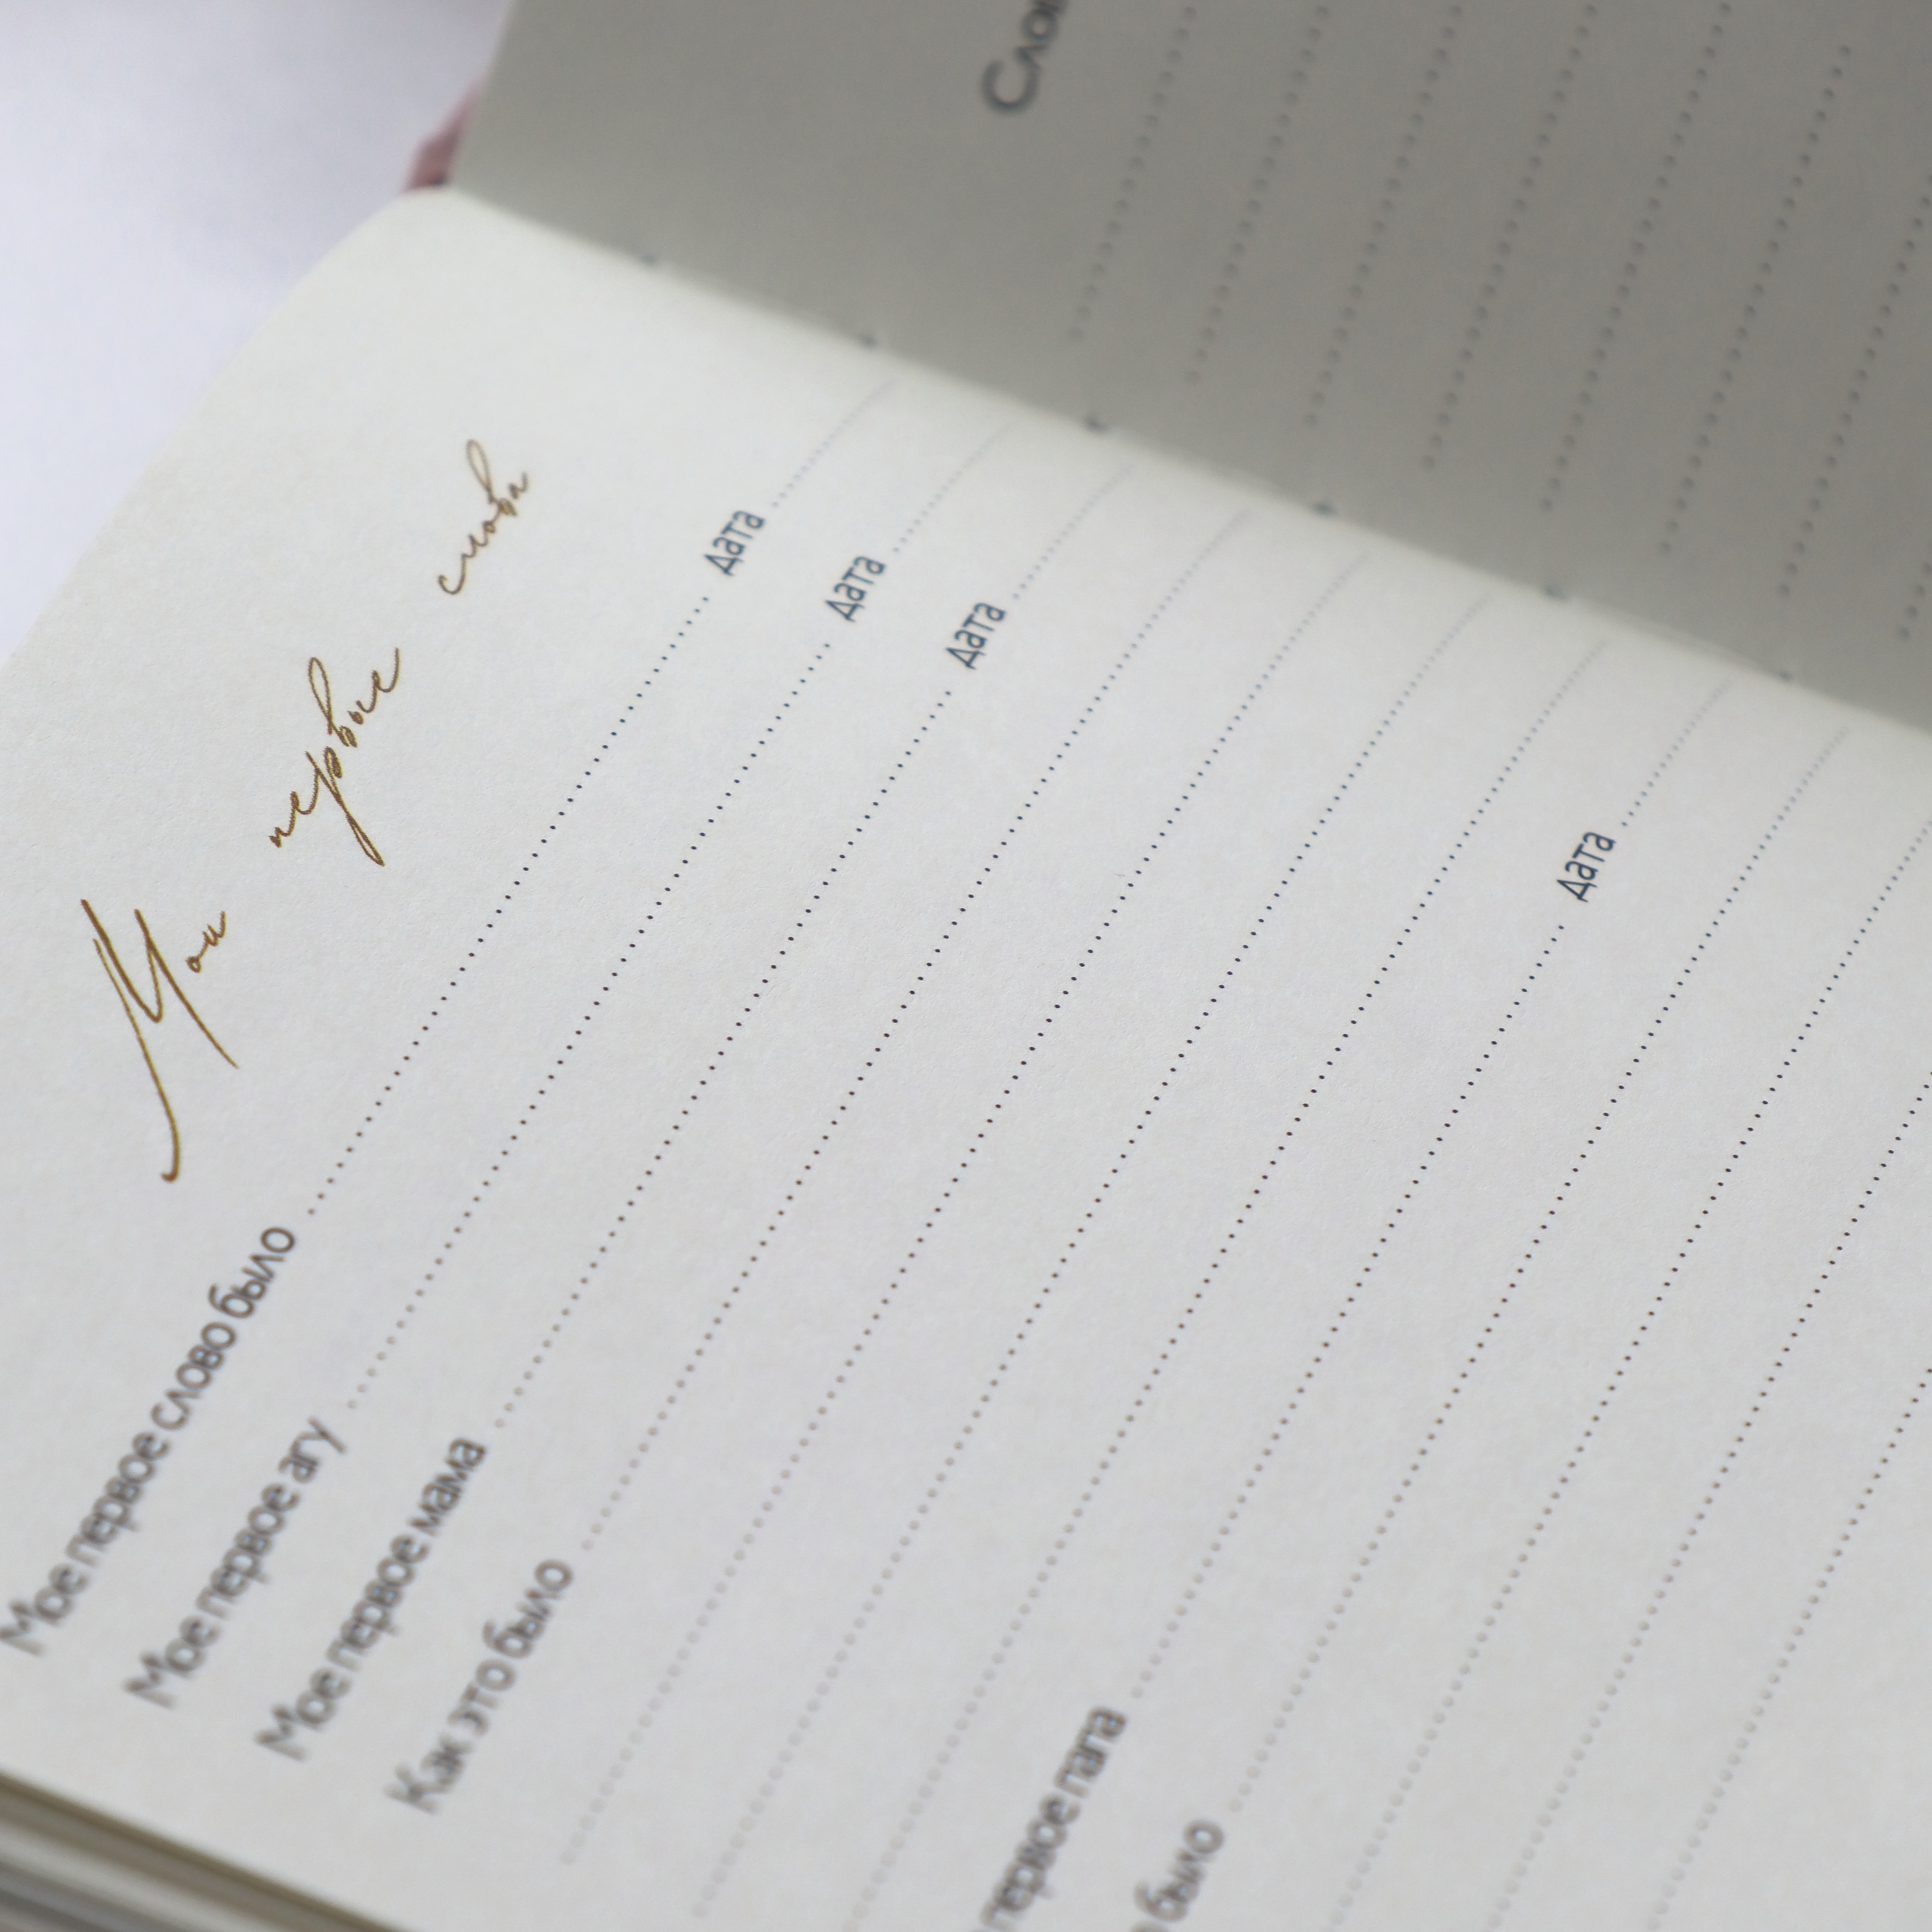 Мои первые слова
Мое первое слово было Дата
Мое первое агу Дата
Мое первое мама Дата
Как это было
первое папа Дата
было